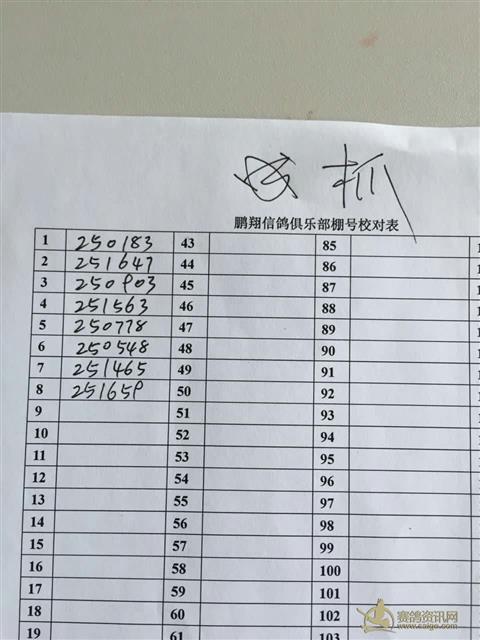 抓
鹏翔信鸽俱乐部棚号校对表
1 250183 43 85
2 251647 44 86
3 250903 45 87
4 251563 46 88
5 250778 47 89
6 250548 48 90
7 251465 49 91
8 251659 50 92
9 51 93
10 52 94
11 53 95
12 54 96
13 55 97
14 56 98
15 57 99
16 58 100
17 59 101
18 60 102
19 61 103
赛鸽资讯网
www.saige.com